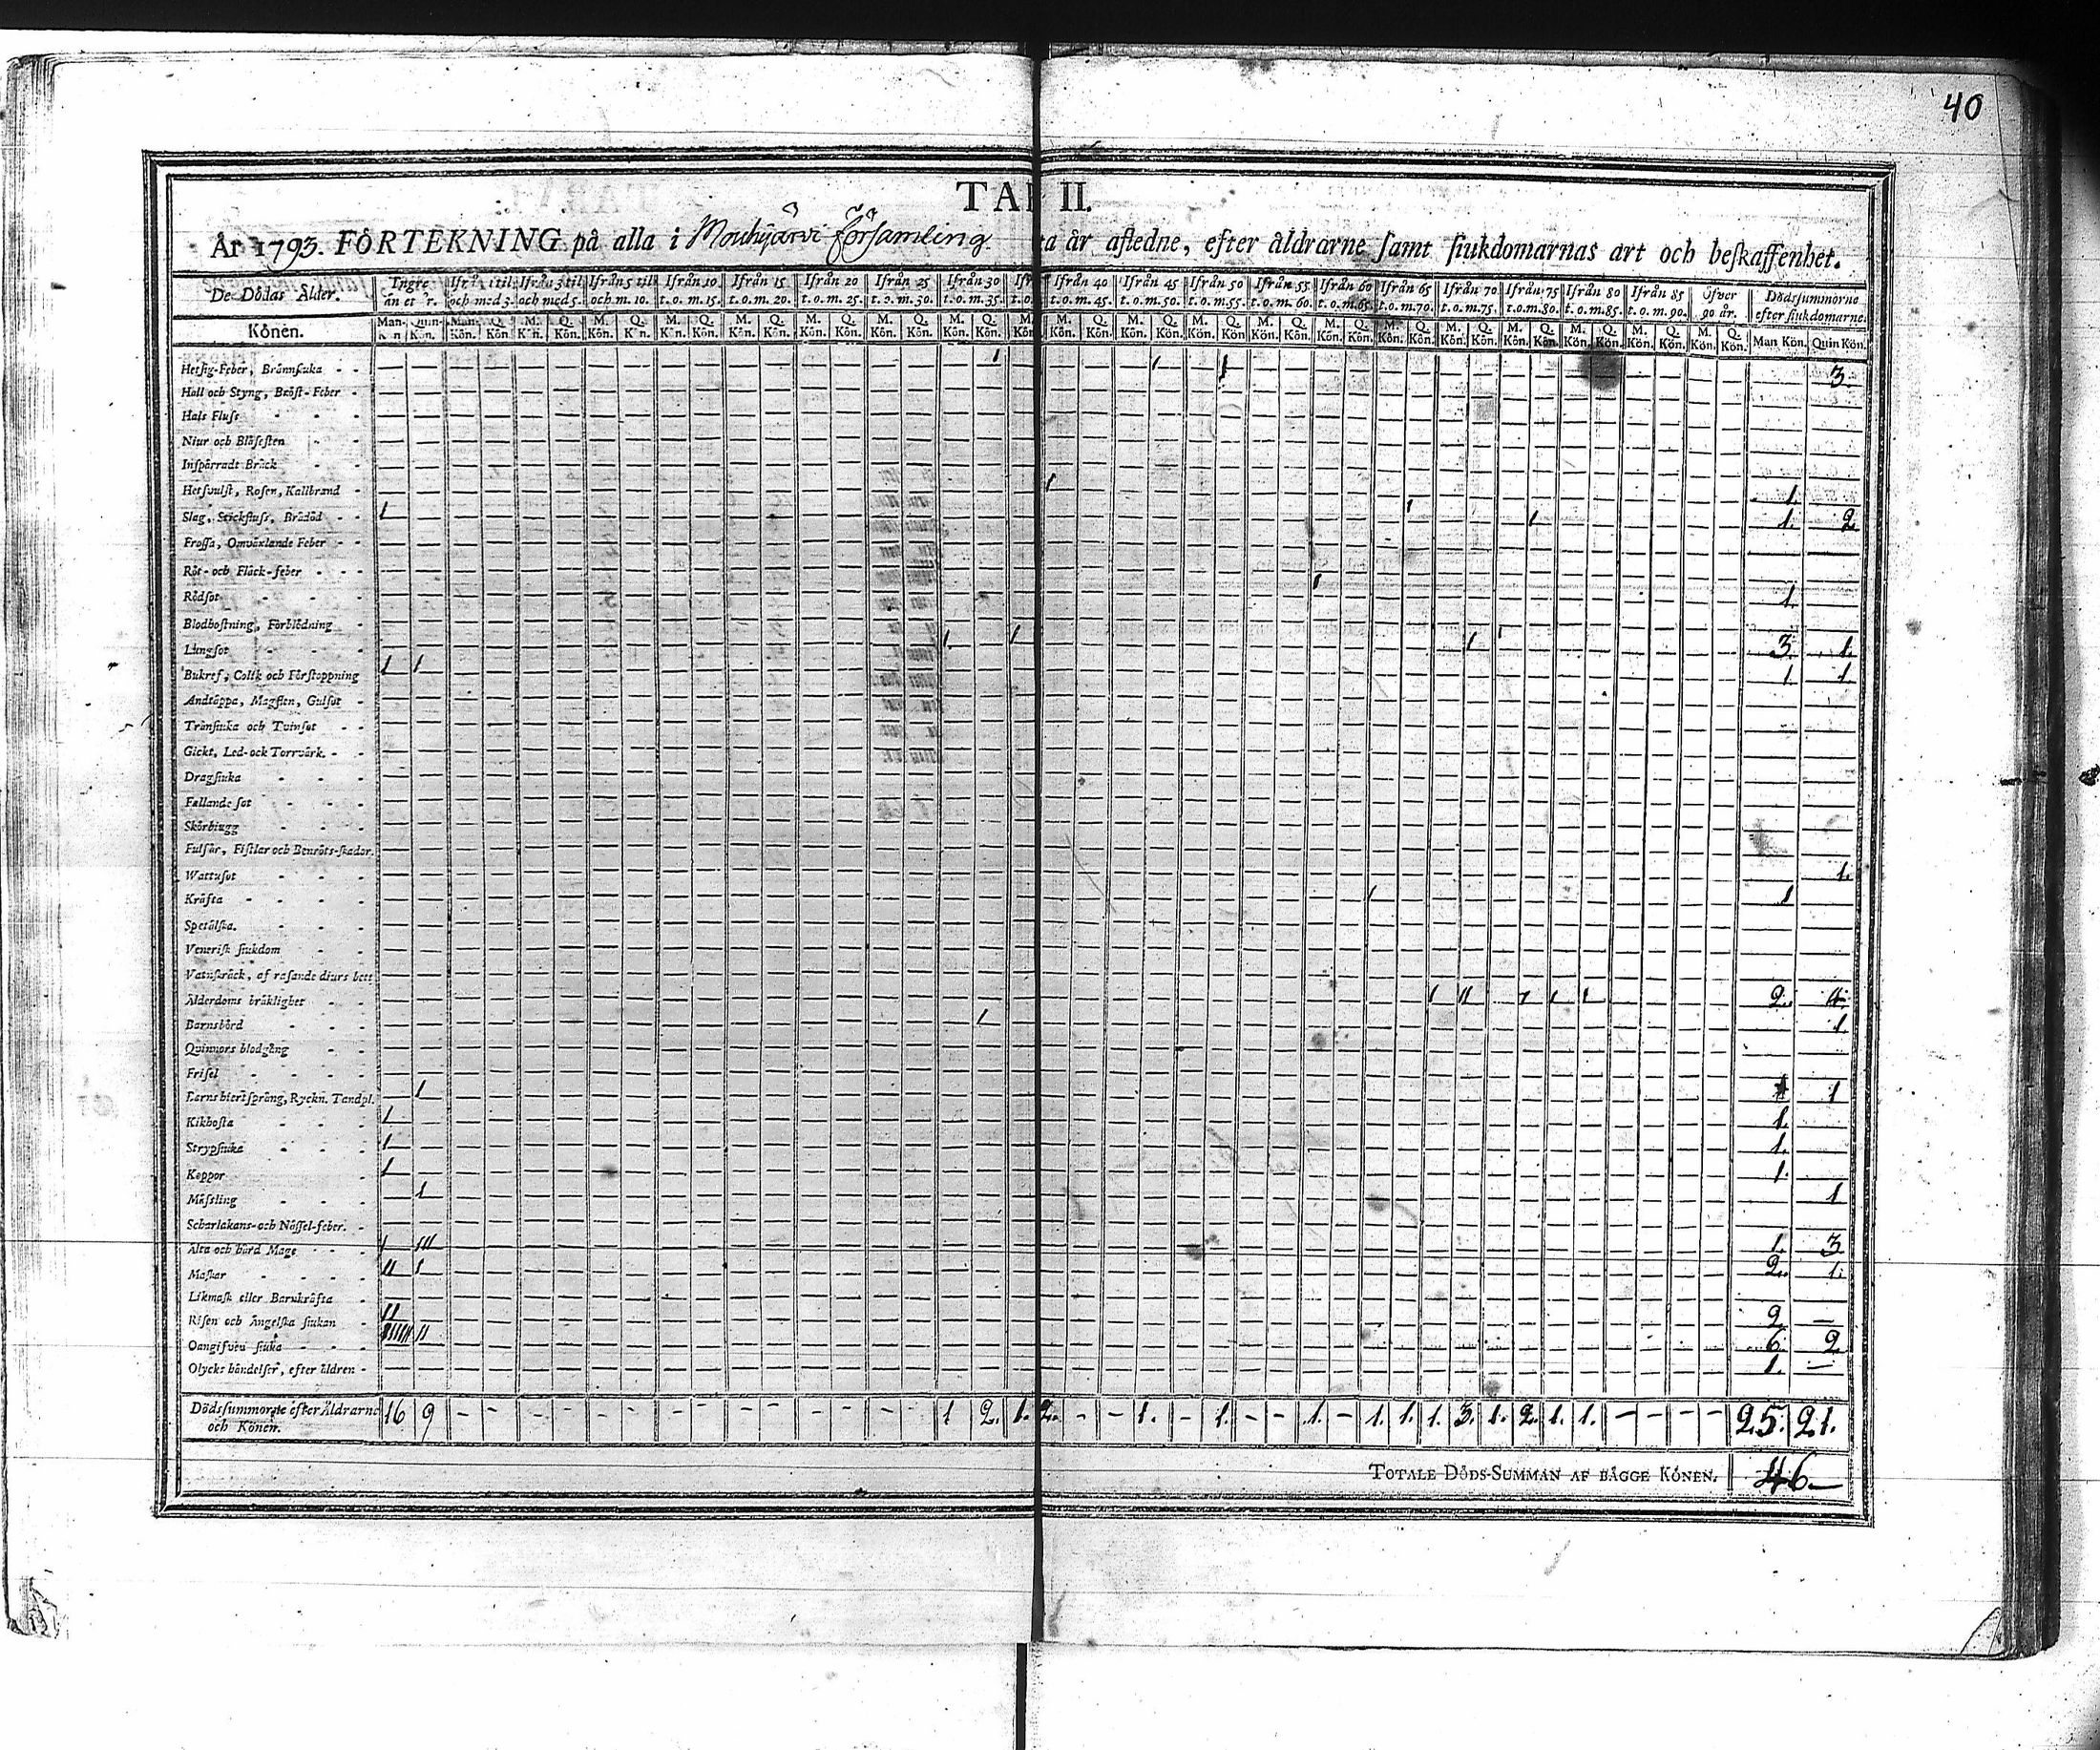 40
TAB II.
År 1793. FÖRTEKNING på alla i Mouhijärvi församling ta år afledne, efter åldrarne samt siukdomarnas art och beskaffenhet.
De Dödas Ålder. Yngre än et år. Ifrån 1 til och med 3. Ifrån 3 til och med 5. Ifrån 5 til och m. 10. Ifrån 10 t. o. m. 15. Ifrån 15 t. o. m. 20. Ifrån 20 t. o. m. 25. Ifrån 25 t. o. m. 30. Ifrån 30 t. o. m. 35. Ifrån 40 t. o. m. 45. Ifrån 45 t. o. m. 50. Ifrån 50 t. o. m. 55. Ifrån 55 t. o. m. 60. Ifrån 60 t. o. m. 65. Ifrån 65 t. o. m. 70. Ifrån 70 t. o. m. 75. Ifrån 75 t. o. m. 80. Ifrån 80 t. o. m. 85. Ifrån 85 t. o. m. 90. Öfver 90 år. Dödssummorne efter siukdomarne.
Könen. Man-Kön Quin-Kön. Man-Kön. Q. Kön. M. Kön. Q. Kön. M. Kön. Q. Kön. M. Kön. Q. Kön. M. Kön. Q. Kön. M. Kön. Q. Kön. M. Kön. Q. Kön. M. Kön. Q. Kön. M. Kön. Q. Kön. M. Kön. Q. Kön. M. Kön. Q. Kön. M. Kön. Q. Kön. M. Kön. Q. Kön. M. Kön. Q. Kön. M. Kön. Q. Kön. M. Kön. Q. Kön. M. Kön. Q. Kön. M. Kön. Q. Kön. M. Kön. Q. Kön. Man Kön. Quin Kön.
Hetsig-Feber, Brännsiuka - - 1 1 1 3
Håll och Styng, Bröst-Feber -
Hals Fluss
Niur och Blåsesten
Inspärradt Bråck
Hetsvulst, Rosen, Kallbrand - 1 1
Slag, Stickfluss, Brådöd - - 1 1 1 1. 2
Frossa, Omväxlande Feber - -
Röt- och Fläck-feber - - -
Rödsot 1 1
Blodhostning, Förblödning
Lungsot 1 1 1 1 3. 1.
Bukref, Colik och Förstoppning 1 1 1 1.
Andtäppa, Magsten, Gulsot -
Trånsiuka och Tvinsot - -
Gickt, Led- ock Torrvärk. - -
Dragsiuka
Fallande sot
Skörbiugg
Fulsår, Fistlar och Benröts-skador.
Wattusot 1.
Kräfta 1 1
Spetälska.
Venerisk siukdom
Vatuskräck, af rasande diurs bett
Ålderdoms bräklighet 1 11 1 1 1 2. 4
Barnsbörd 1 1
Quinnors blodgång
Frisel
Barns hiertsprång, Ryckn. Tandpl. 1 1
Kikhosta 1 1.
Strypsiuka 1 1.
Koppor 1 1.
Mässling 1 1
Scharlakans- och Nässel-feber. -
Älta och hård Mage 1 111 1. 3
Maskar 11 1 2. 1.
Likmask eller Barnkräfta
Risen och Ängelska siukan 11 2 —
Oangifven siuka 111111 11 6 2
Olycks händelser, efter åldren - 1. —
Dödssummorne efter Åldrarne och Könen. 16 9 - - - - - - - - - - - - - - 1 2. 1. 2. - - 1. - 1. - - 1. - 1. 1. 1. 3. 1. 2. 1. 1. - - - - 25. 21.
TOTALE DÖDS-SUMMAN AF BÅGGE KÖNEN. 46—